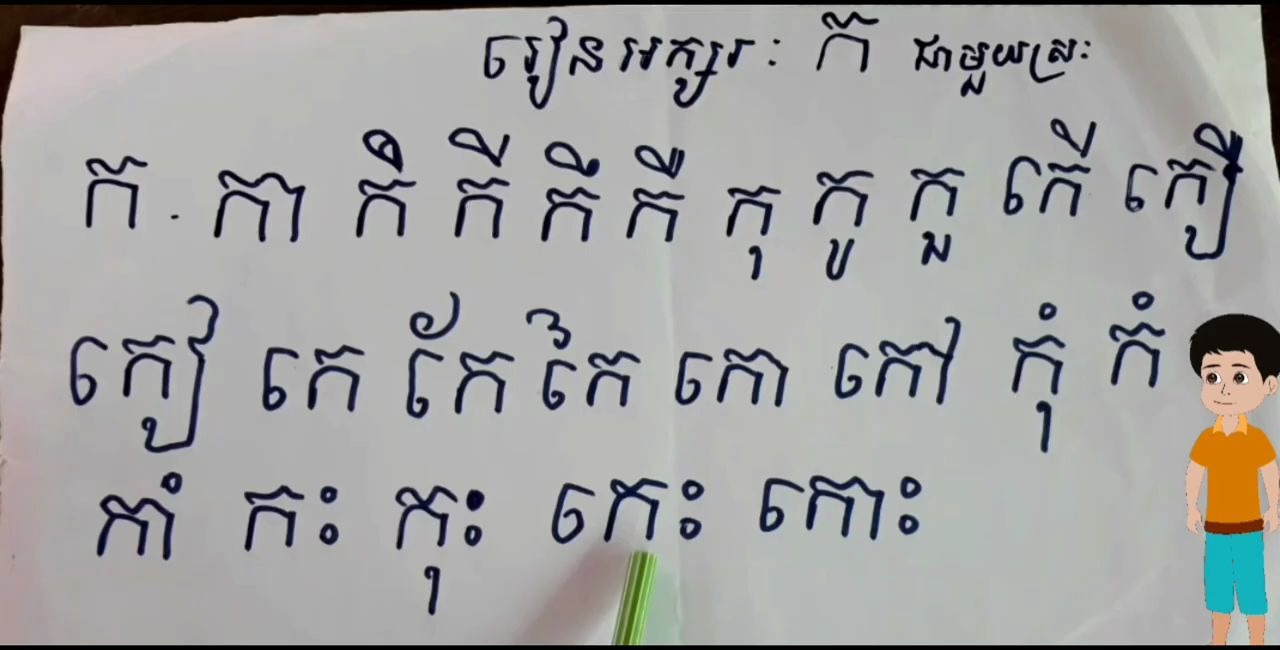 រៀនអក្សរ: ក ជាមួយស្រៈ
ក . កា កិ កី កឹ កឺ កុ កូ កួ កើ កឿ
កៀ កេ កែ កៃ កោ កៅ កុំ កំ
កាំ កះ កុះ កេះ កោះ